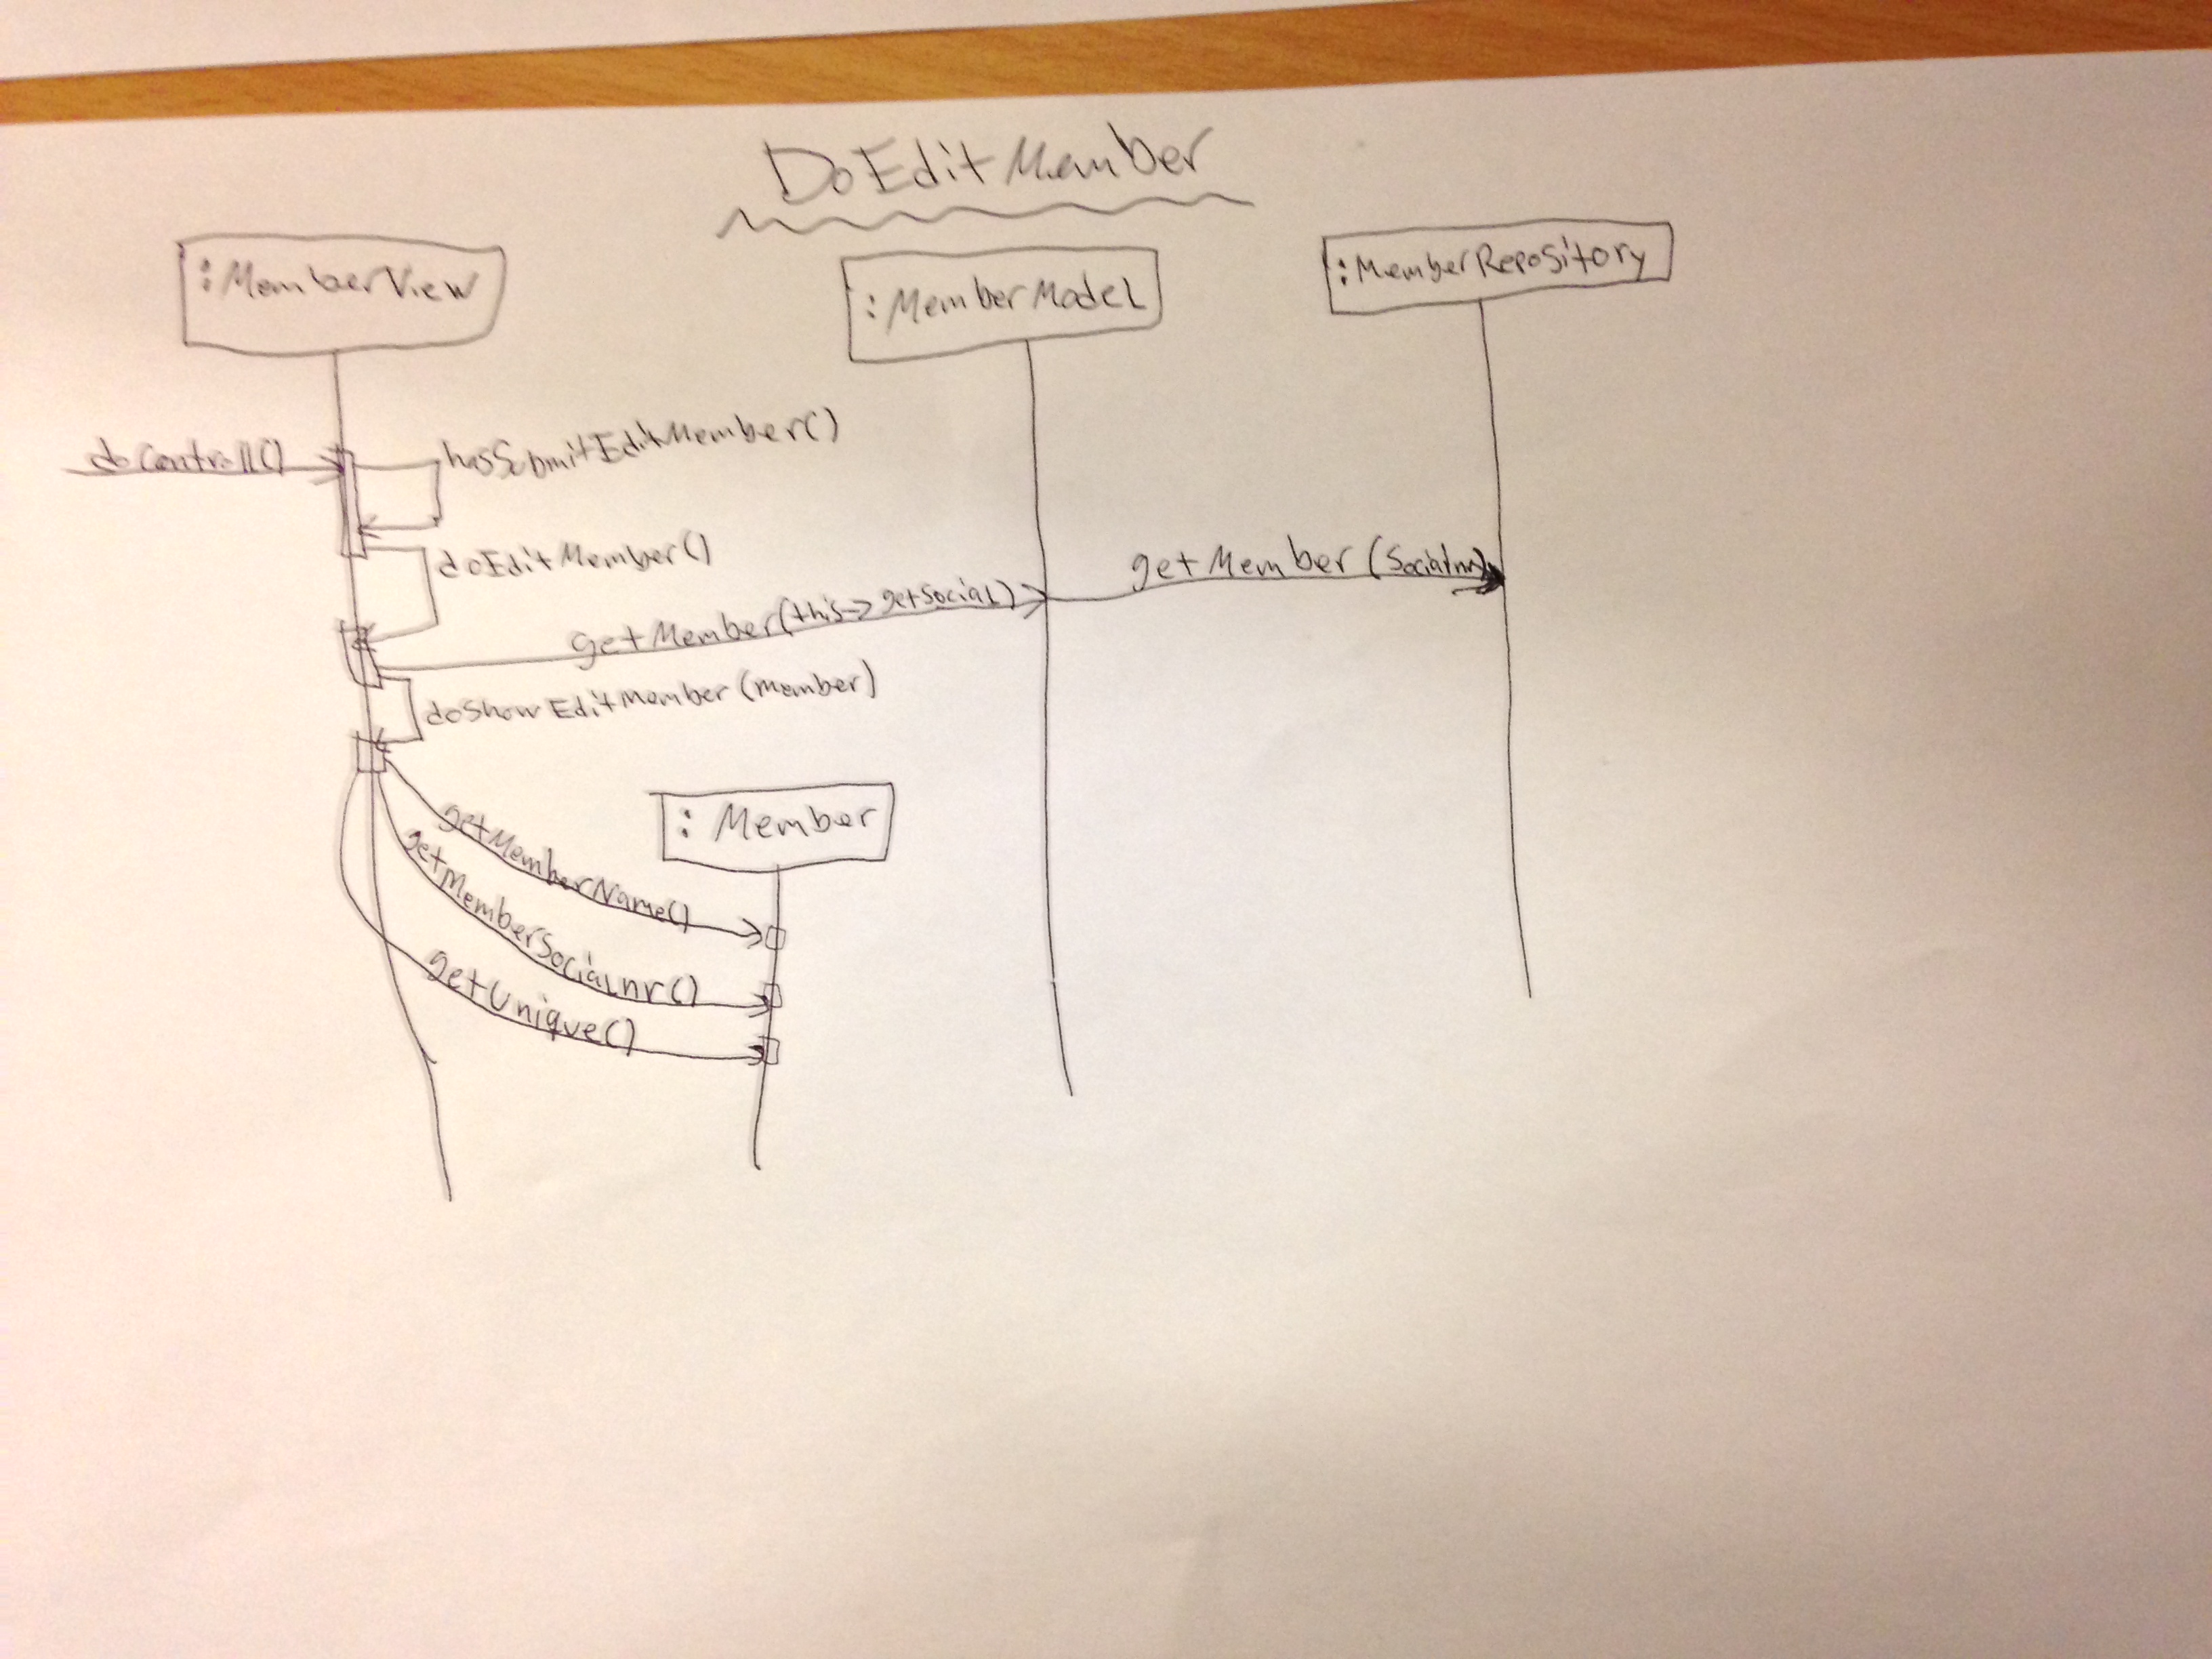 DoEditMember
:MemberView
:MemberModel
:MemberRepository
doControll()
hasSubmitEditMember()
doEditMember()
getMember(this->getSocial)
getMember(Socialnr)
doShowEditMember(member)
:Member
getMemberName()
getMemberSocialnr()
getUnique()